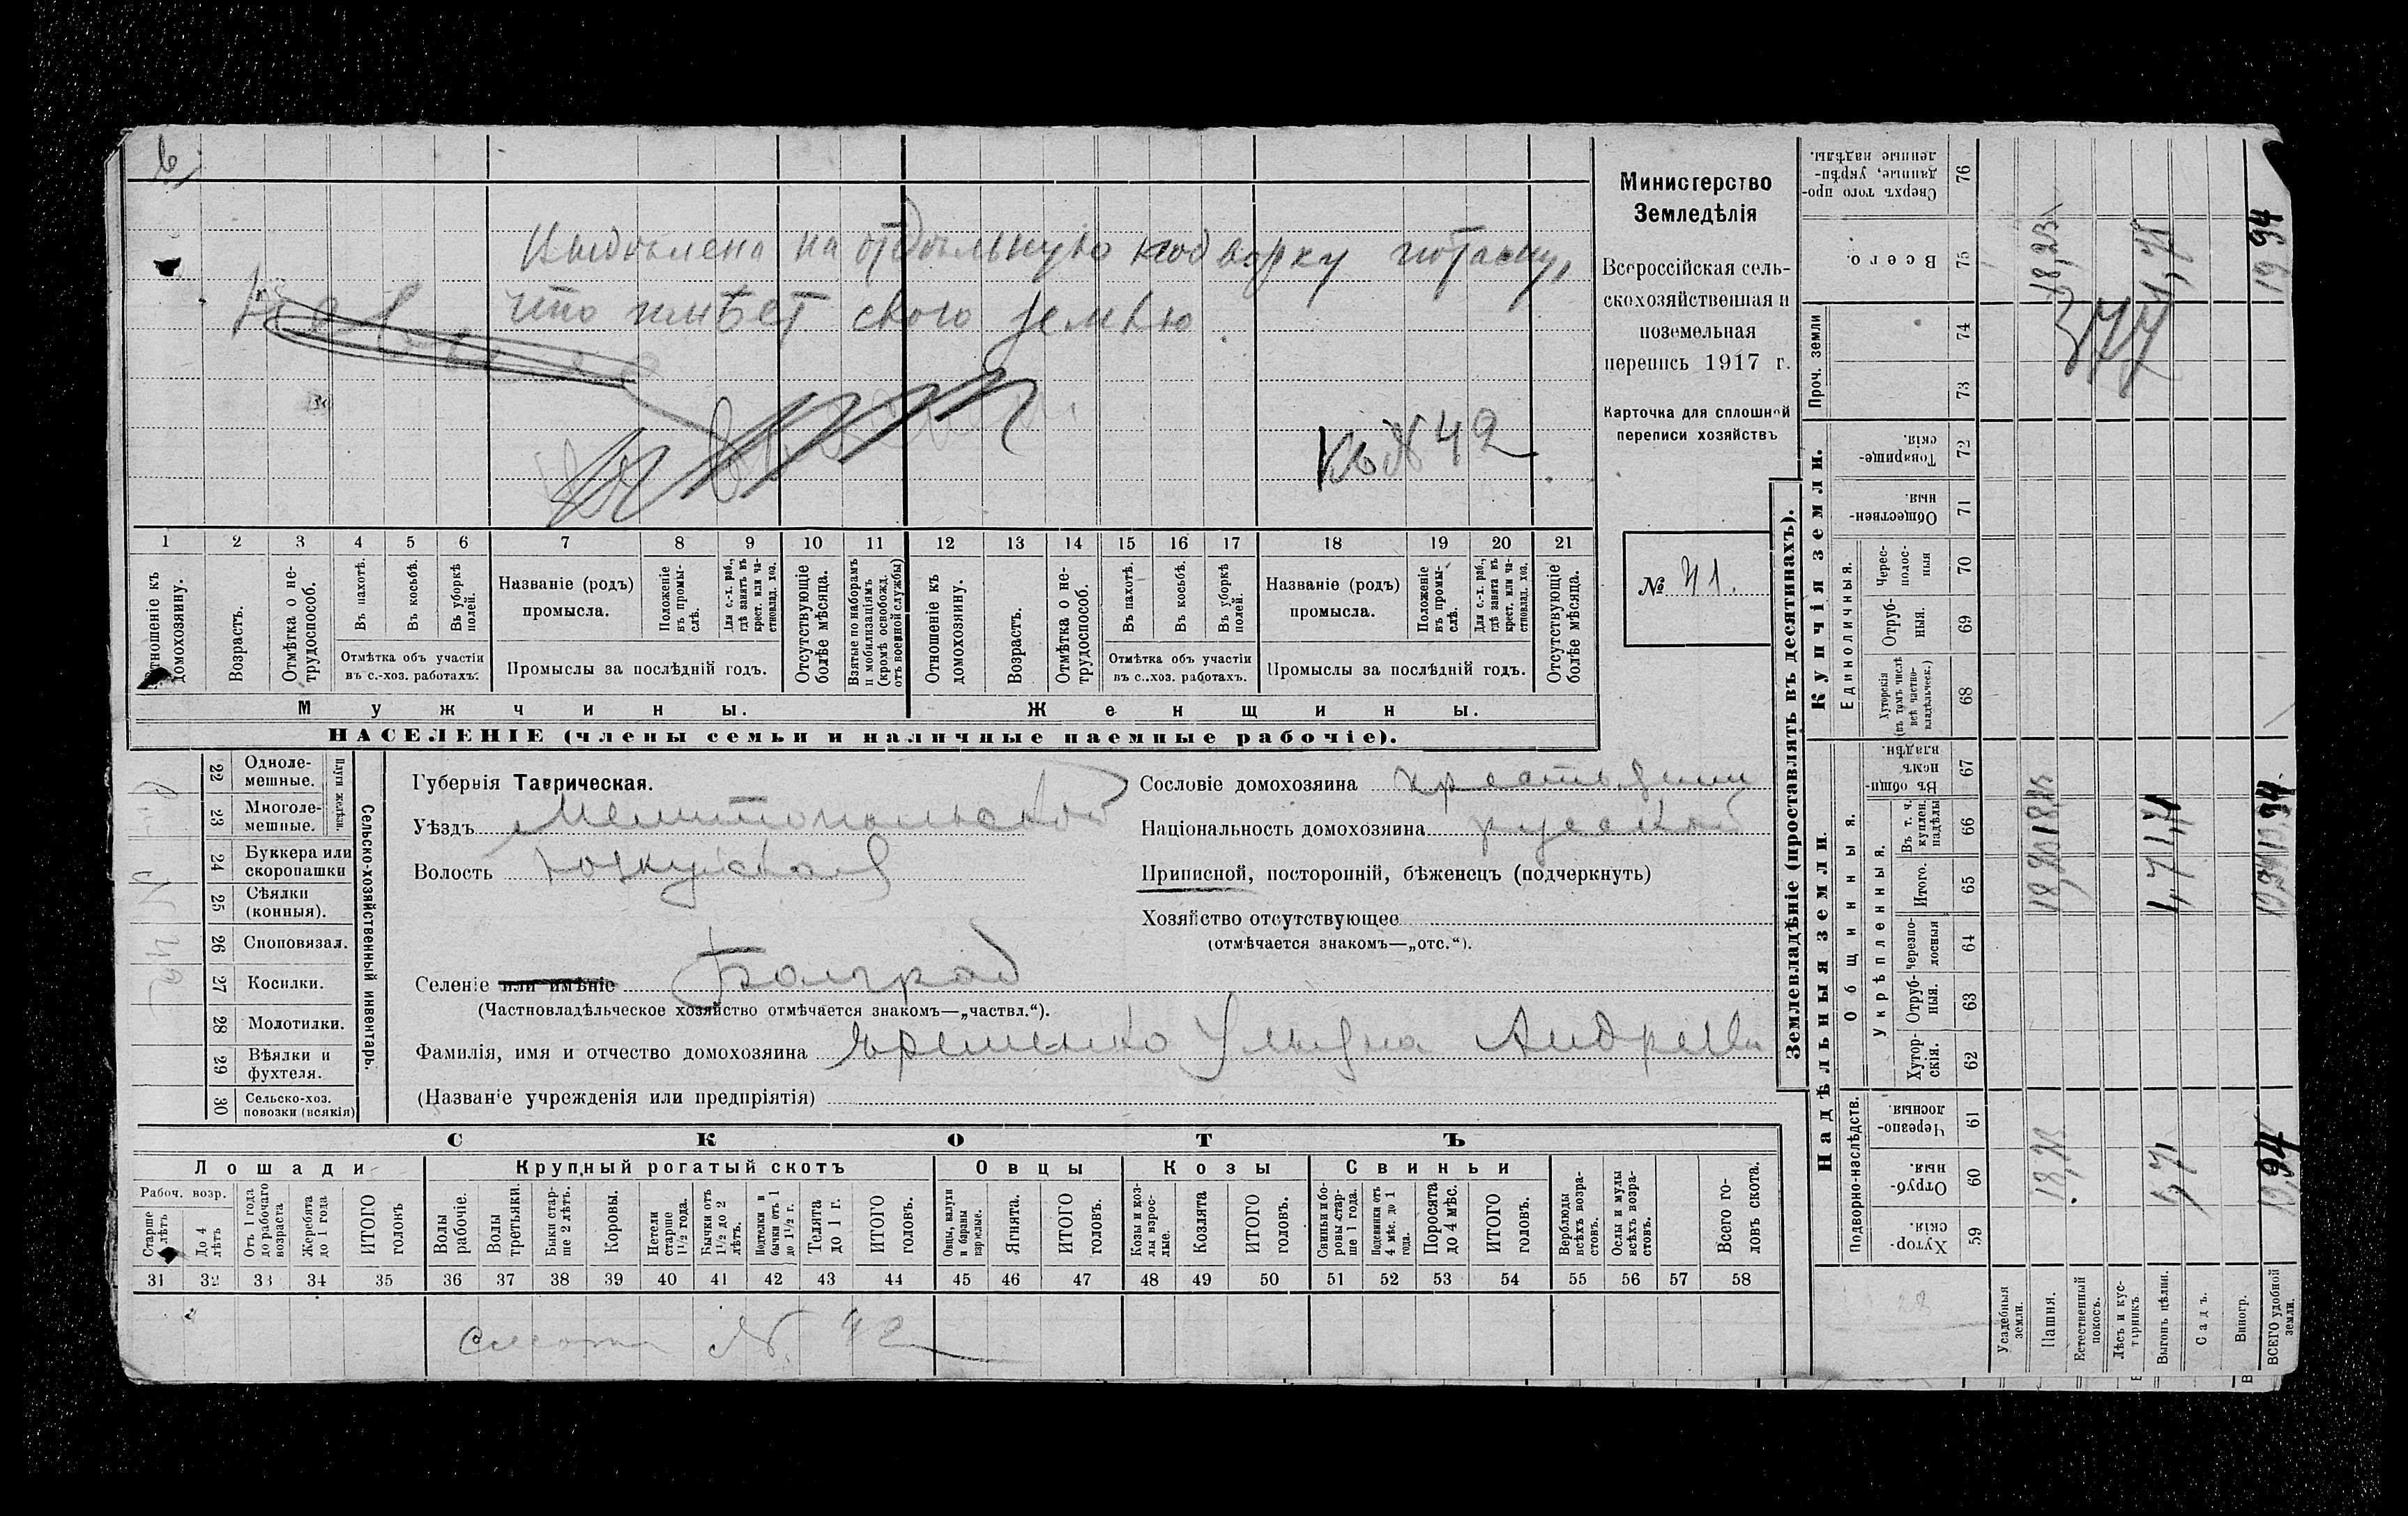 Выдѣлена на отдѣльную подворку потому,
что имѣет свою землю
Къ № 42
1 2 3 4 5 6 7 8 9 10 11 12 13 14 15 16 17 18 19 20 21
Отношеніе къ домохозяину.
Возрастъ.
Отмѣтка о не-
трудоспособ.
Въ пахотѣ.
Въ косьбѣ.
Въ уборкѣ полей.
Отмѣтка объ участіи
въ с.-хоз. работахъ.
Названіе (родъ)
промысла.
Положеніе въ промы-
слѣ.
Для с.-х. раб.,
гдѣ занятъ въ
крест. или ча-
стновлад. хоз.
Промыслы за послѣдній годъ.
Отсутствующіе
болѣе мѣсяца.
Взятые по наборамъ
и мобилизаціямъ
(кромѣ освобожд.
отъ военной службы)
Отношеніе къ
домохозяину.
Возрастъ.
Отмѣтка о не-
трудоспособ.
Въ пахотѣ.
Въ косьбѣ.
Въ уборкѣ полей.
Отмѣтка объ участіи
въ с.-хоз. работахъ.
Названіе (родъ)
промысла.
Положеніе въ промы-
слѣ.
Для с.-х. раб.,
гдѣ занята въ
крест. или ча-
стновлад. хоз.
Промыслы за послѣдній годъ.
Отсутствующіе
болѣе мѣсяца.
Мужчины. Женщины.
НАСЕЛЕНІЕ (члены семьи и наличные наемные рабочіе).
Министерство
Земледѣлія
Всероссійская сель-
скохозяйственная и
поземельная
перепись 1917 г.
Карточка для сплошной
переписи хозяйствъ
№ 41.
22 Одноле-
мешные.
23 Многоле-
мешные.
Плуги желѣзн.
24 Буккера или
скоропашки
25 Сѣялки
(конныя).
26 Сноповязал.
27 Косилки.
28 Молотилки.
29 Вѣялки и
фухтеля.
30 Сельско-хоз.
повозки (всякія)
Сельско-хозяйственный инвентарь.
Губернія Таврическая.
Уѣздъ Мелитопольской
Волость Юзкуйская
Селеніе или имѣніе Болград
(Частновладѣльческое хозяйство отмѣчается знакомъ—„частвл.“).
Фамилія, имя и отчество домохозяина Яременко Ульяна Андреевн
(Названіе учрежденія или предпріятія)
Сословіе домохозяина крестьянин
Національность домохозяина русской
Приписной, посторонній, бѣженецъ (подчеркнуть)
Хозяйство отсутствующее
(отмѣчается знакомъ—„отс.“).
СКОТЪ
Лошади Крупный рогатый скотъ Овцы Козы Свиньи
Рабоч. возр.
Старше 4 лѣтъ
До 4 лѣтъ
Отъ 1 года
до рабочаго
возраста
Жеребята
до 1 года
ИТОГО
головъ
Волы
рабочіе.
Волы
третьяки.
Быки стар-
ше 2 лѣтъ.
Коровы.
Нетели
старше
1½ года.
Бычки отъ
1½ до 2
лѣтъ.
Подтелки и
бычки отъ 1
до 1½ г.
Телята
до 1 г.
ИТОГО
головъ.
Овцы, валухи
и бараны
взрослые.
Ягнята.
ИТОГО
головъ.
Козы и коз-
лы взрос-
лые.
Козлята
ИТОГО
головъ.
Свиньи и бо-
ровы стар-
ше 1 года.
Подсвинки отъ
4 мѣс. до 1
года.
Поросята
до 4 мѣс.
ИТОГО
головъ.
Верблюды
всѣхъ возра-
стовъ.
Ослы и мулы
всѣхъ возра-
стовъ.
Всего го-
ловъ скота.
31 32 33 34 35 36 37 38 39 40 41 42 43 44 45 46 47 48 49 50 51 52 53 54 55 56 57 58
Смотр № 42
Землевладѣніе (проставлять въ десятинахъ).
Надѣльныя земли. Купчія земли. Проч. земли
Подворно-наслѣдств.
Общинныя.
Укрѣпленныя.
Единоличныя.
59 Хутор-
скія.
60 Отруб-
ныя.
61 Черезпо-
лосныя.
62 Хутор-
скія.
63 Отруб-
ныя.
64 Черезпо-
лосныя
65 Итого.
66 Въ т. ч.
куплен.
надѣлы
67 Въ общин-
номъ
владѣн.
68 Хуторскія
(въ томъ числѣ
всѣ частно-
владѣльческ.)
69 Отруб-
ныя.
70 Черес-
полос-
ныя
71 Обществен-
ныя.
72 Товарище-
скія.
73
74
75 Всего.
76 Сверхъ того про-
данные, укрѣп-
ленные надѣлы.
Усадебныя
земли.
Пашня.
Естественный
покосъ.
Лѣсъ и кус-
тарникъ
Выгонъ цѣлин.
1,71
1,71
Садъ.
Виногр.
ВСЕГО удобной
земли.
19 94
377